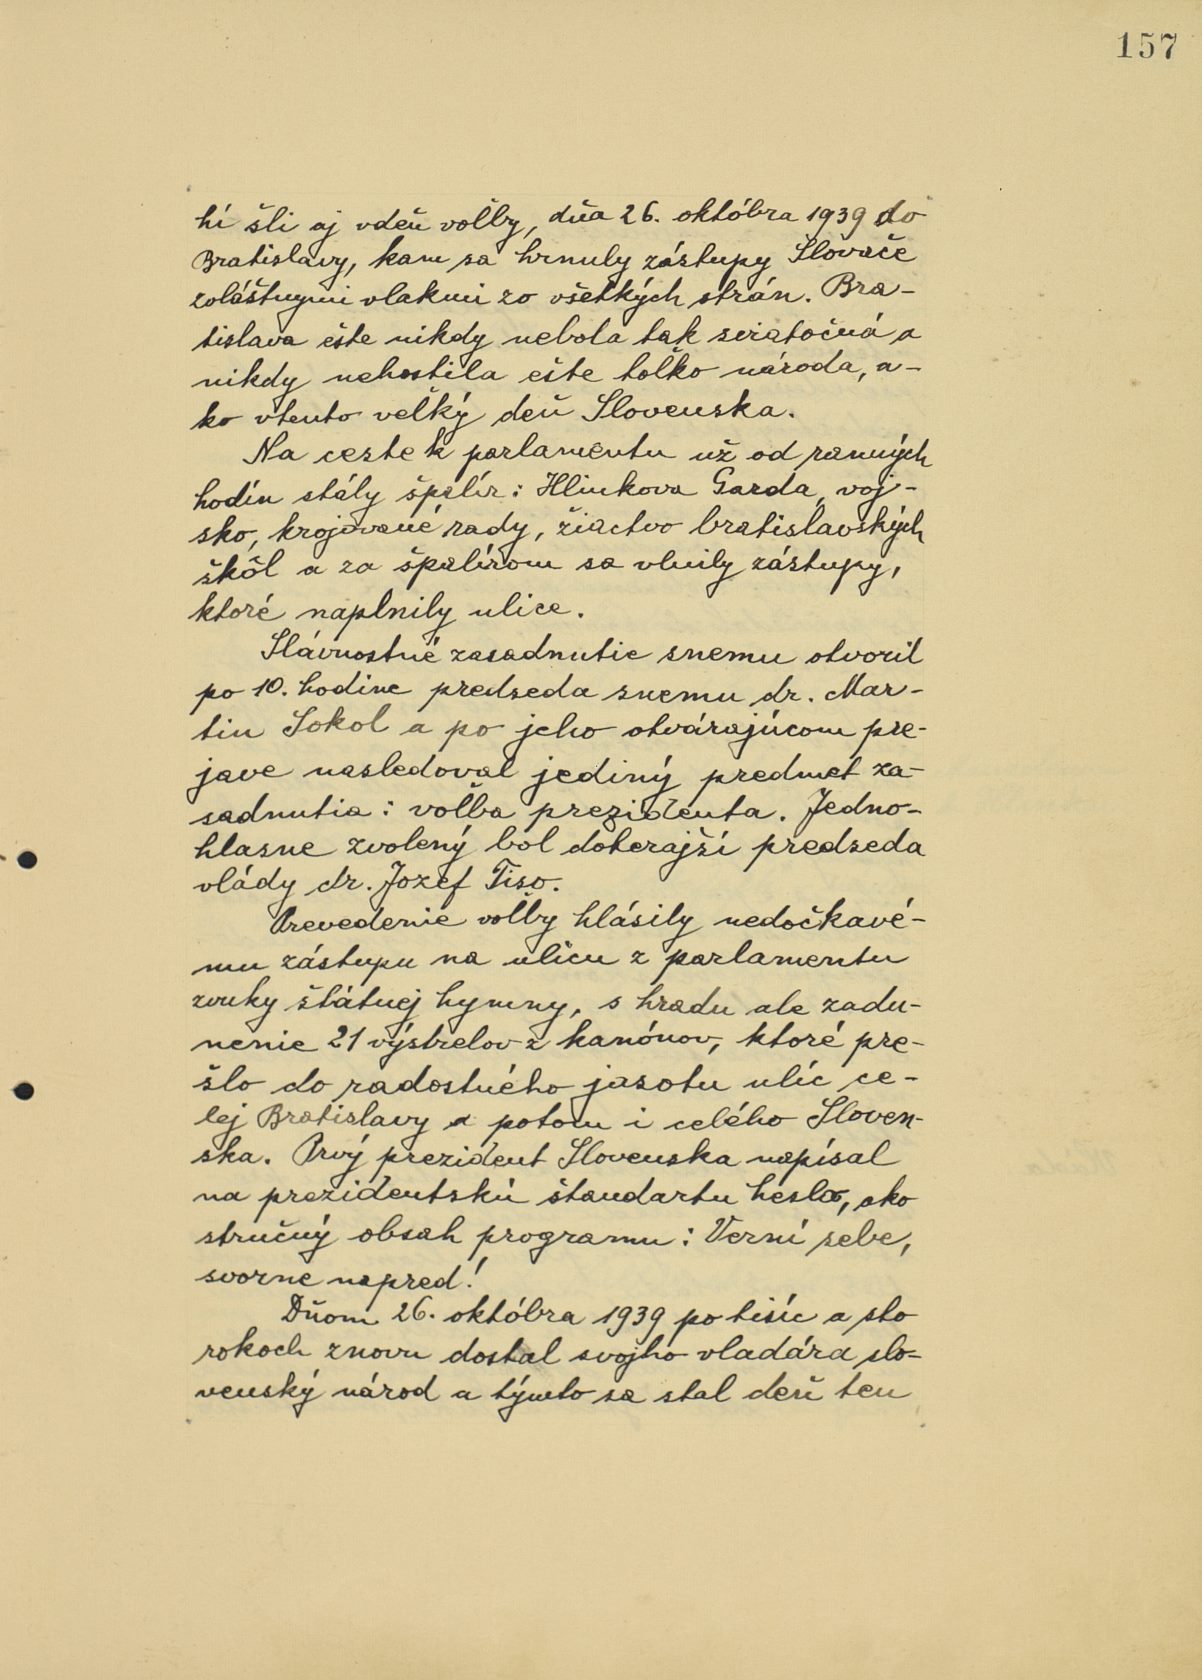 157
hí šli aj vdeň voľby, dňa 26. októbra 1939 do
Bratislavy, kam sa hrnuly zástupy Slovače
zvláštnymi vlakmi zo všetkých strán. Bra-
tislava ešte nikdy nebola tak sviatočná a
nikdy nehostila ešte toľko národa, a-
ko vtento veľký deň Slovenska.
Na ceste k parlamentu už od ranných
hodín stály špalír: Hlinkova Garda, voj-
sko, krojované rady, žiactvo bratislavských
škôl a za špalírom sa vlnily zástupy,
ktoré naplnily ulice.
Slávnostné zasadnutie snemu otvoril
po 10. hodine predseda snemu dr. Mar-
tin Sokol a po jeho otvárajúcom pre-
jave nasledoval jediný predmet za-
sadnutia: voľba prezidenta. Jedno-
hlasne zvolený bol doterajší predseda
vlády dr. Jozef Tiso.
Prevedenie voľby hlásily nedočkavé-
mu zástupu na ulicu z parlamentu
zvuky štátnej hymny, s hradu ale zadu-
nenie 21 výstrelov z kanónov, ktoré pre-
šlo do radostného jasotu ulíc ce-
lej Bratislavy a potom i celého Sloven-
ska. Prvý prezident Slovenska napísal
na prezidentskú štandartu heslo, ako
stručný obsah programu: Verní sebe,
svorne napred!
Dňom 26. októbra 1939 po tisíc a sto
rokoch znovu dostal svojho vladára slo-
venský národ a týmto sa stal deň ten